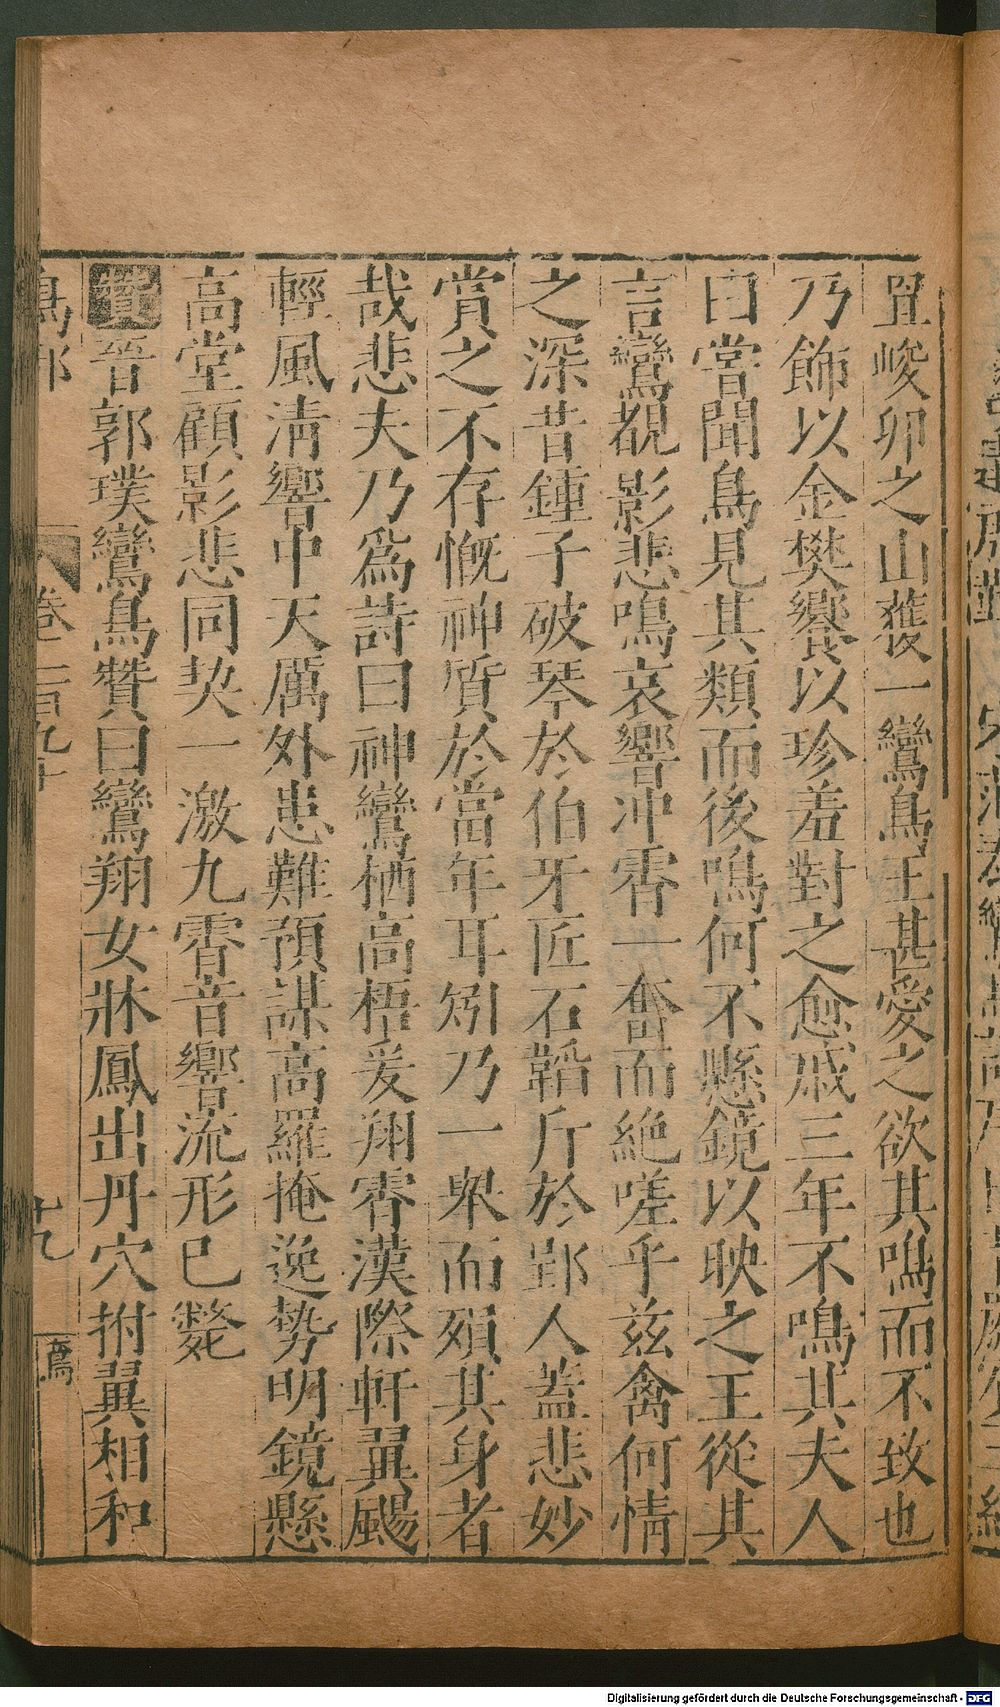 罝峻卯之山獲一鸞鳥王甚愛之欲其鳴而不致也
乃飾以金樊饗以珍羞對之愈戚三年不鳴其夫人
曰嘗聞鳥見其類而後鳴何不懸鏡以映之王從其
言鸞覩影悲鳴哀響冲霄一奮而絶嗟乎兹禽何情
之深昔鍾子破琴於伯牙匠石韜斤於郢人蓋悲妙
賞之不存慨神質於當年耳矧乃一舉而殞其身者
哉悲夫乃爲詩曰神鸞栖高梧爰翔霄漢際軒翼颺
輕風清響中天厲外患難預謀高羅掩逸勢明鏡懸
高堂顧影悲同契一激九霄音響流形已斃
贊晉郭璞鸞鳥贊曰鸞翔女牀鳳出丹穴拊翼相和
鳥部 卷二百九十 十九 鸞
Digitalisierung gefördert durch die Deutsche Forschungsgemeinschaft - DFG